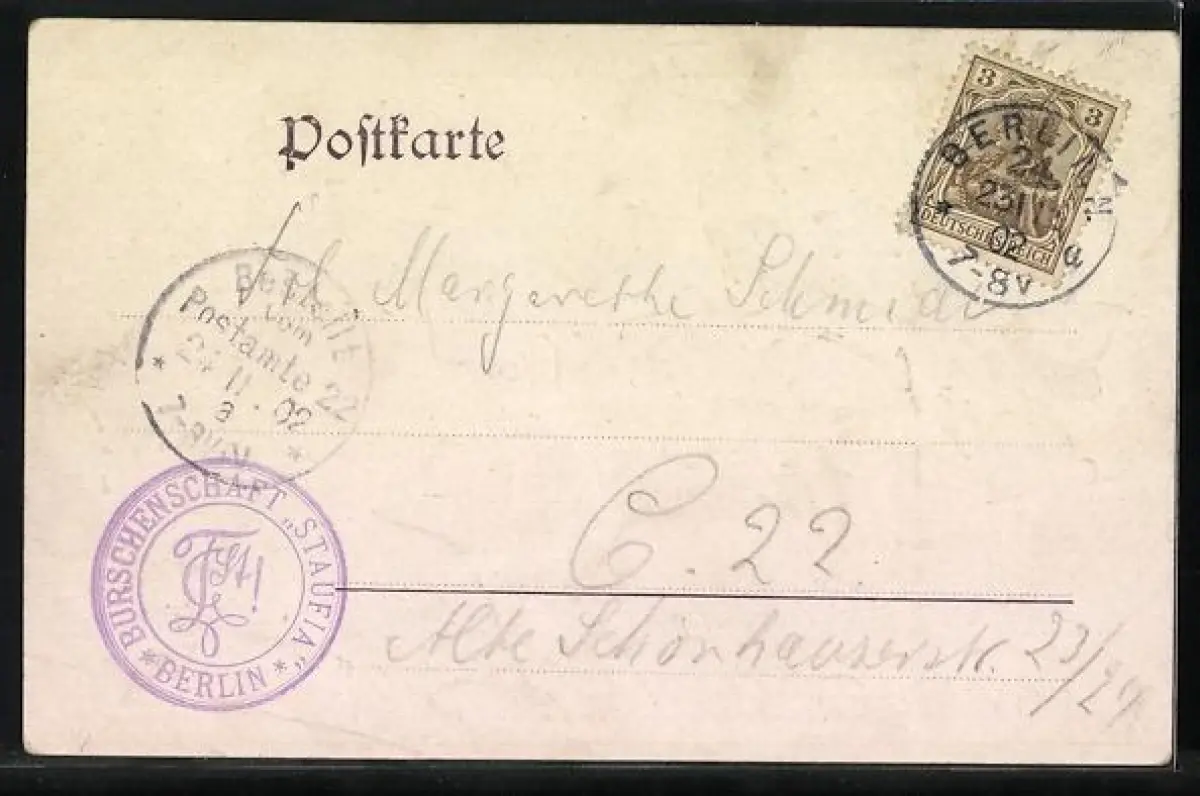 Postkarte
3 3
DEUTSCHES REICH
BERLIN
23 11
02 a
7-8V
Frl. Margarethe Schmidt
Bestellt
vom
Postamte 22
24 11
a 02
C. 22.
Alte Schönhauserstr. 23/24
BURSCHENSCHAFT „STAUFIA"
St!
*BERLIN*